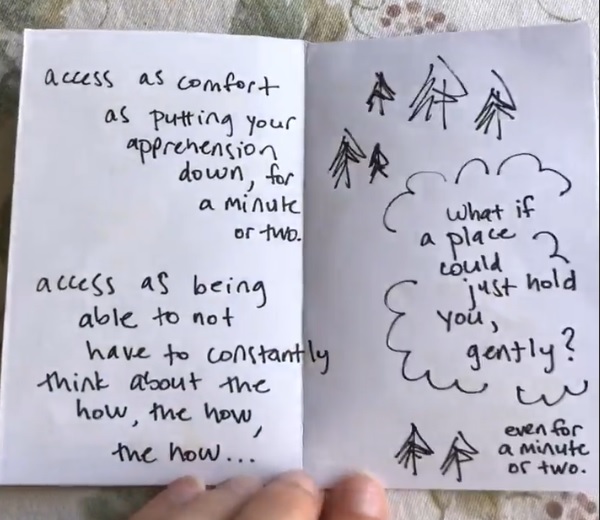 access as comfort
as putting your
apprehension
down, for
a minute
or two.
access as being
able to not
have to constantly
think about the
how, the how,
the how...
What if
a place
could
just hold
you,
gently?
even for
a minute
or two.